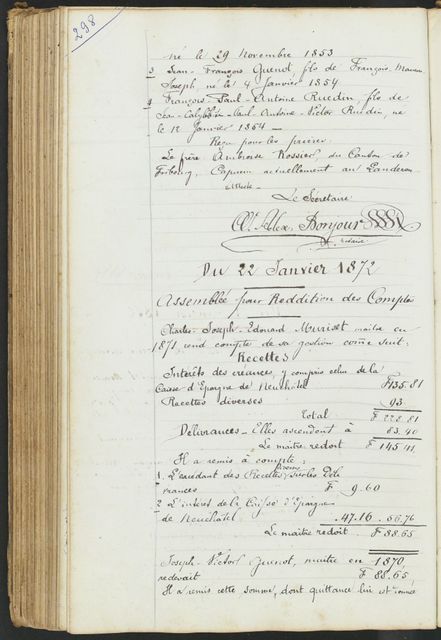 298
né le 29 Novembre 1853
3 Jean-François Guenot, fils de François Maurice
Joseph, né le 4 Janvier 1854
4 François Paul-Antoine Ruedin, fils de
Paul-Antoine-Victor Ruedin, né
le 12 Janvier 1854 —
Reçu pour les prières
Le frère Ambroise Rossier, du Canton de
Fribourg, Capucin actuellement au Landeron
atteste
Le Secrétaire
Alex. Bonjour
notaire
Du 22 Janvier 1872
Assemblée pour Reddition des Comptes
Charles-Joseph-Edouard Muriset maître en
1871 rend compte de sa gestion comme suit:
Recettes
Intérêts des créances, y compris celui de la
Caisse d'Epargne de Neuchâtel F 135.81
Recettes diverses 93
Total F 228.81
Délivrances - Elles ascendent à 83.40
Le maître redoit F 145.41
Il a remis à compte:
1. L'excédant des Recettes diverses sur les Déli
vrances F 9.60
2 L'intérêt de la Caisse d'Epargne
de Neuchâtel 47.16 56.76
Le maître redoit F 88.65
Joseph-Victor Guenot, maître en 1870,
redevait F 88.65
Il a remis cette somme, dont quittance lui est donnée